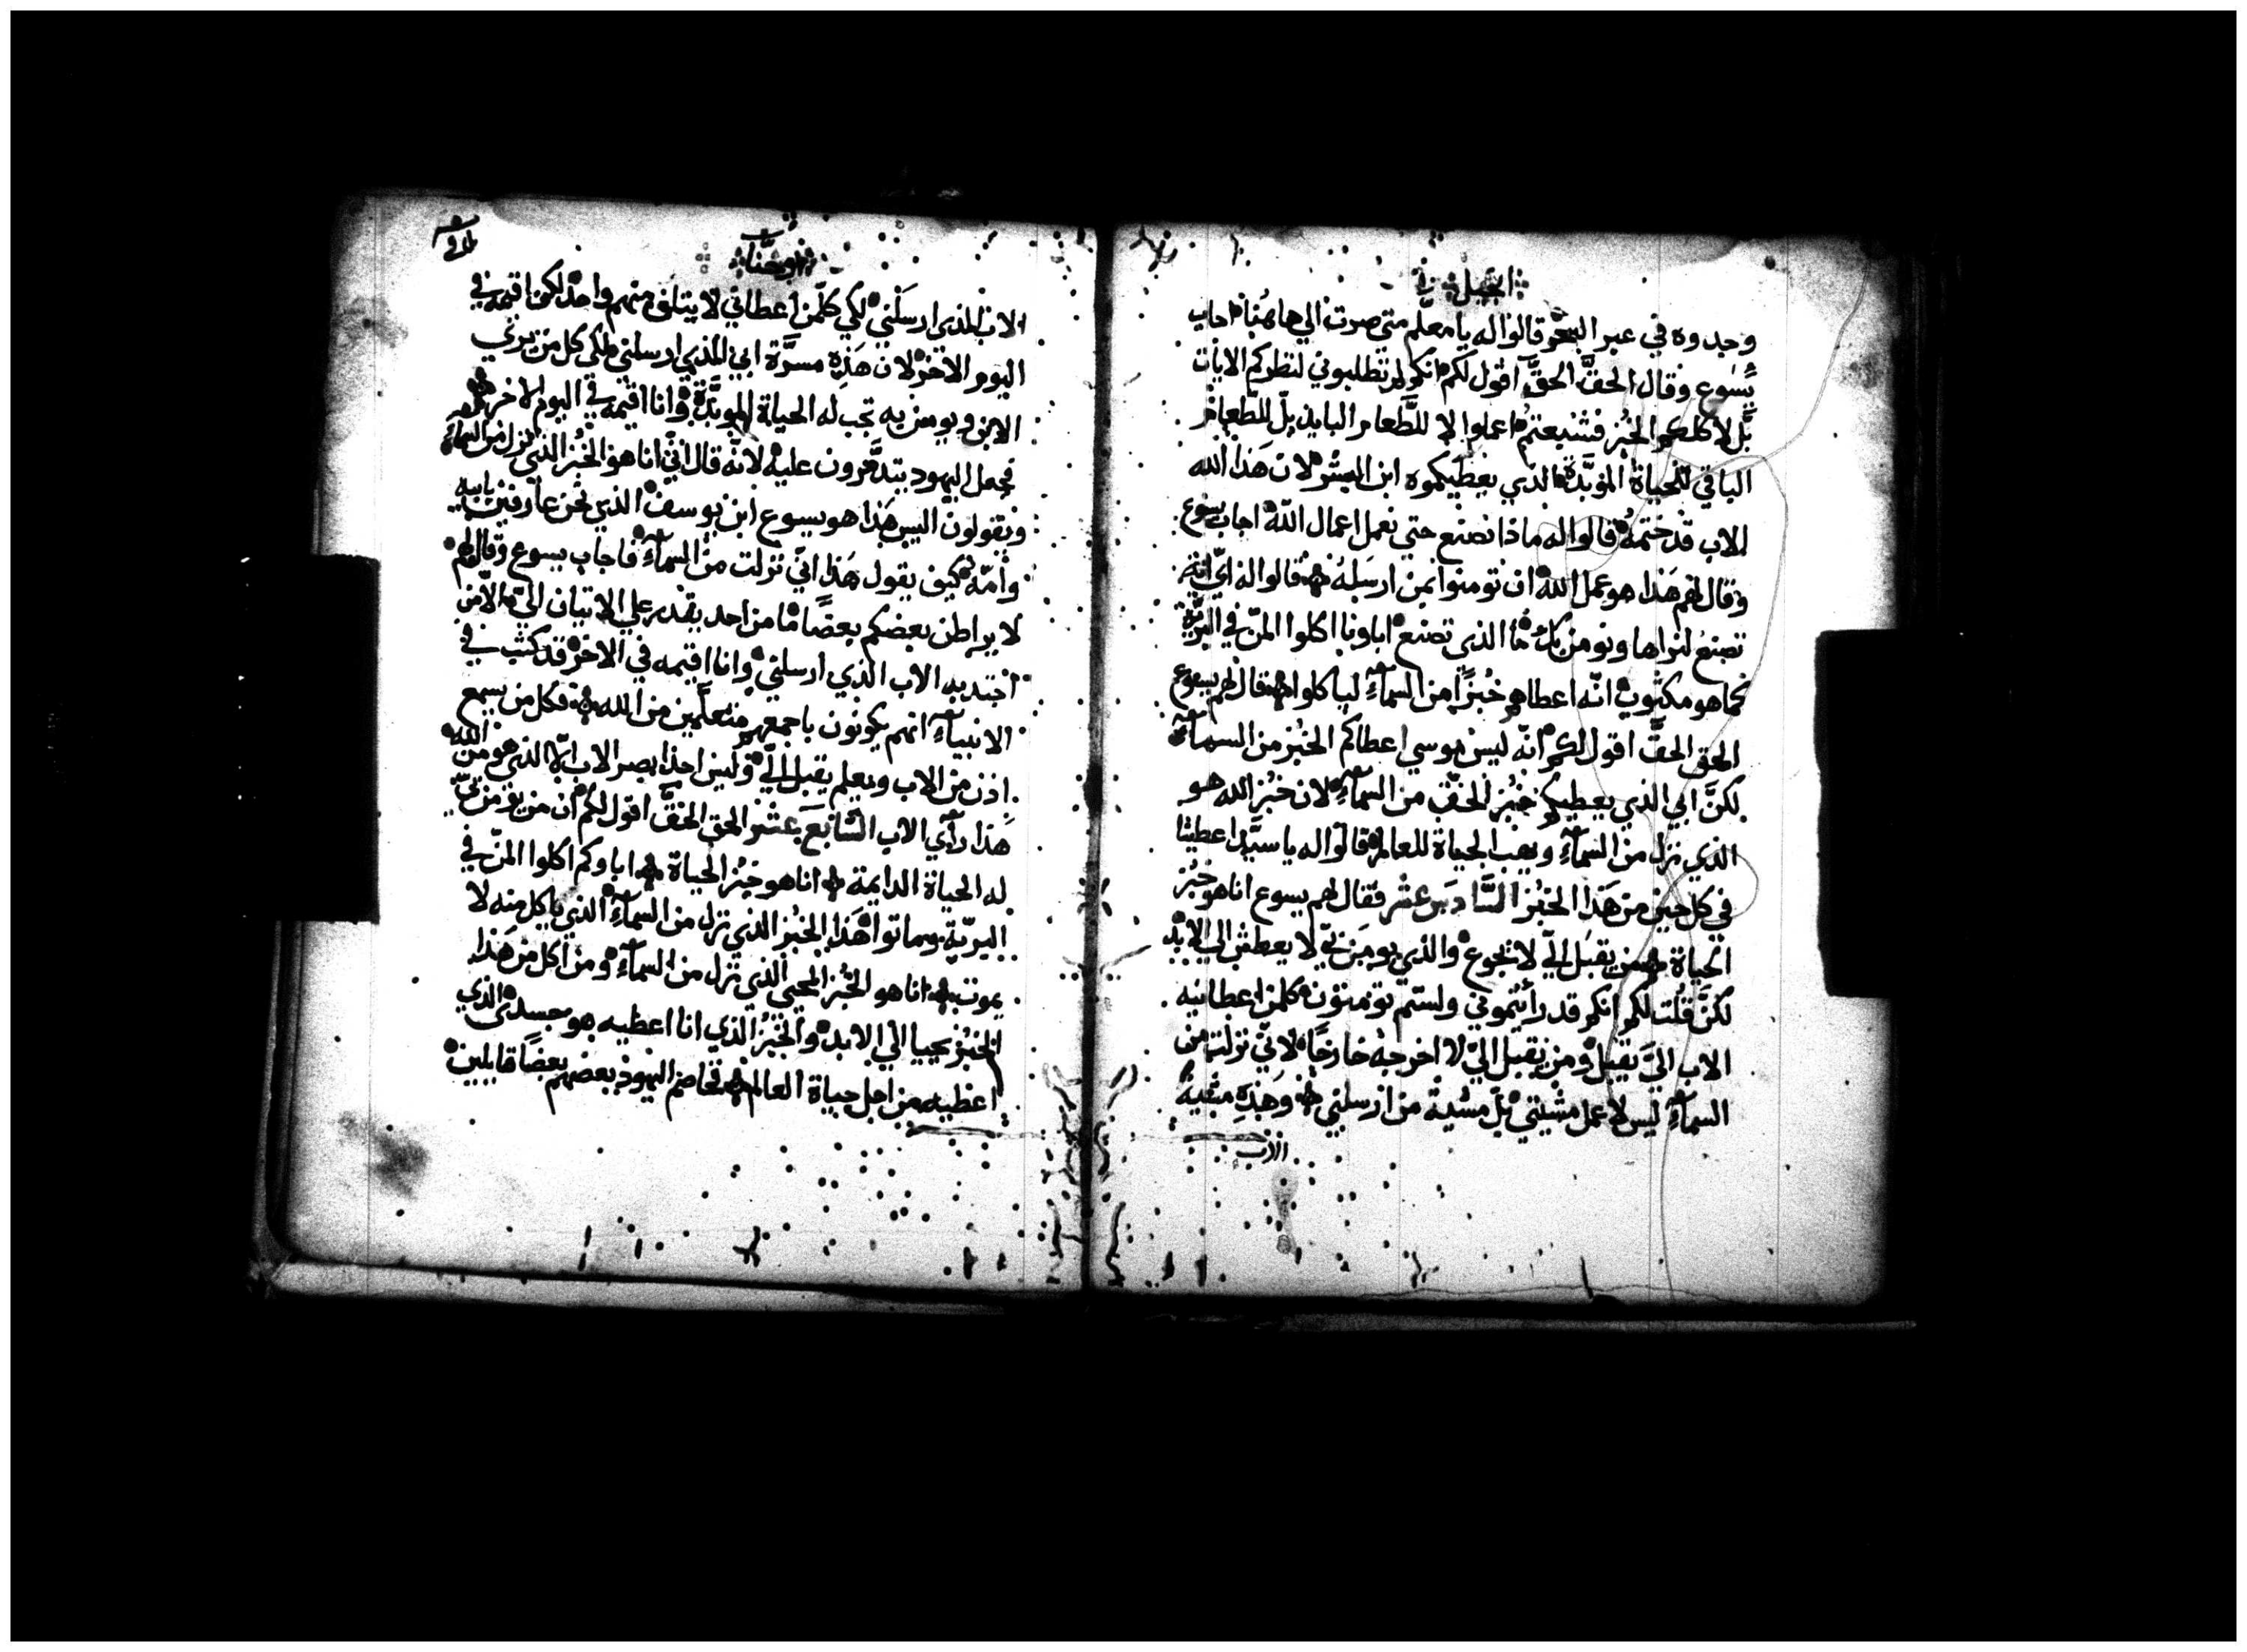 انجيل
وجدوه في عبر البحر قالوا له يا معلم متي صرت الي هاهنا اجاب
يسوع وقال الحق الحق اقول لكم انكم لم تطلبوني لنظركم الايات
بل لاكلكم الخبز فشبعتم اعملوا لا للطعام البايد بل للطعام
الباقي للحياة الموبدة الذي يعطيكموه ابن البشر لان هذا الله
الاب قد ختمه قالوا له ماذا نصنع حتي نعمل اعمال الله اجاب يسوع
وقال لهم هذا هو عمل الله ان تومنوا بمن ارسله قالوا له اي اية
تصنع لنراها ونومن بك ما الذي تصنع اباونا اكلوا المن في البرية
كما هو مكتوب انه اعطاهم خبزًا من السمآءِ لياكلوا فقال لهم يسوع
الحق الحقَّ اقول لكم انّه ليس موسي اعطاكم الخبز من السمآء
لكنَّ ابي الذي يعطيكم خبز الحق من السمآءِ لان خبز الله هو
الذي نزل من السمآءِ ويهب الحياة للعالم قالوا له يا سيد اعطينا
في كل حين من هَذا الخبز السَّادس عشر فقال لهم يسوع انا هو خبز
الحياة من يقبل اليّ لا يجوع والذي يومن بي لا يعطش الي الابد
لكنَّ قلت لكم انكم قد رأيتموني ولستم تومنون كلمن اعطانيه
الاب اليَّ يقبل ومن يقبل اليّ لا اخرجه خارجًا لانّي نزلت من
السمآءِ ليس لاعمل مشيتي بل مشية من ارسلني وهَذِه مشية
الاب
يوحنّا
الاب الذي ارسلني لكي كلّمن اعطاني لا يتلف منهم واحد لكن اقيمه في
اليوم الاخر لان هَذِه مسرَّة ابي الذي ارسلني لكي كل من يري
الابن ويومن به تجب له الحياة الموبَّدة وانا اقيمه في اليوم الاخر
فجعل اليهود يتدمّرون عليه لانّه قال انّي انا هو الخبز الذي نزل من السمآءِ
ويقولون اليس هَذا هو يسوع ابن يوسف الذي نحن عارفين بابيه
وامّه كيف يقول هَذا انّي نزلت من السمآءِ فاجاب يسوع وقال لهم
لا يراطن بعضكم بعضًا ما من احد يقدر علي الاتيان اليّ الّا من
اجتدبه الاب الذي ارسلني وانا اقيمه في الاخر قد كتب في
الانبيآءِ انهم يكونون باجمعهم متعلّمين من الله فكل من يسمع
اذن من الاب ويعلم يقبل اليّ وليس احدا بصر الاب الّا الذي هو من الله
هذا رأي الاب السّابع عشر الحق الحقَّ اقول لكم ان من يومن بيّ
له الحياة الدايمة انا هو خبز الحياة اباوكم اكلوا المنّ في
البريّة وماتوا هَذا الخبز الذي نزل من السمآءِ الذي ياكل منه لا
يموت انا هو الخبز المحيي الذي نزل من السمآءِ ومن اكل من هَذا
الخبز يحيا الي الابد والخبز الذي انا اعطيه هو جسدي الذي
اعطيه من اجل حياة العالم فخاصم اليهود بعضهم بعضًا قايلين